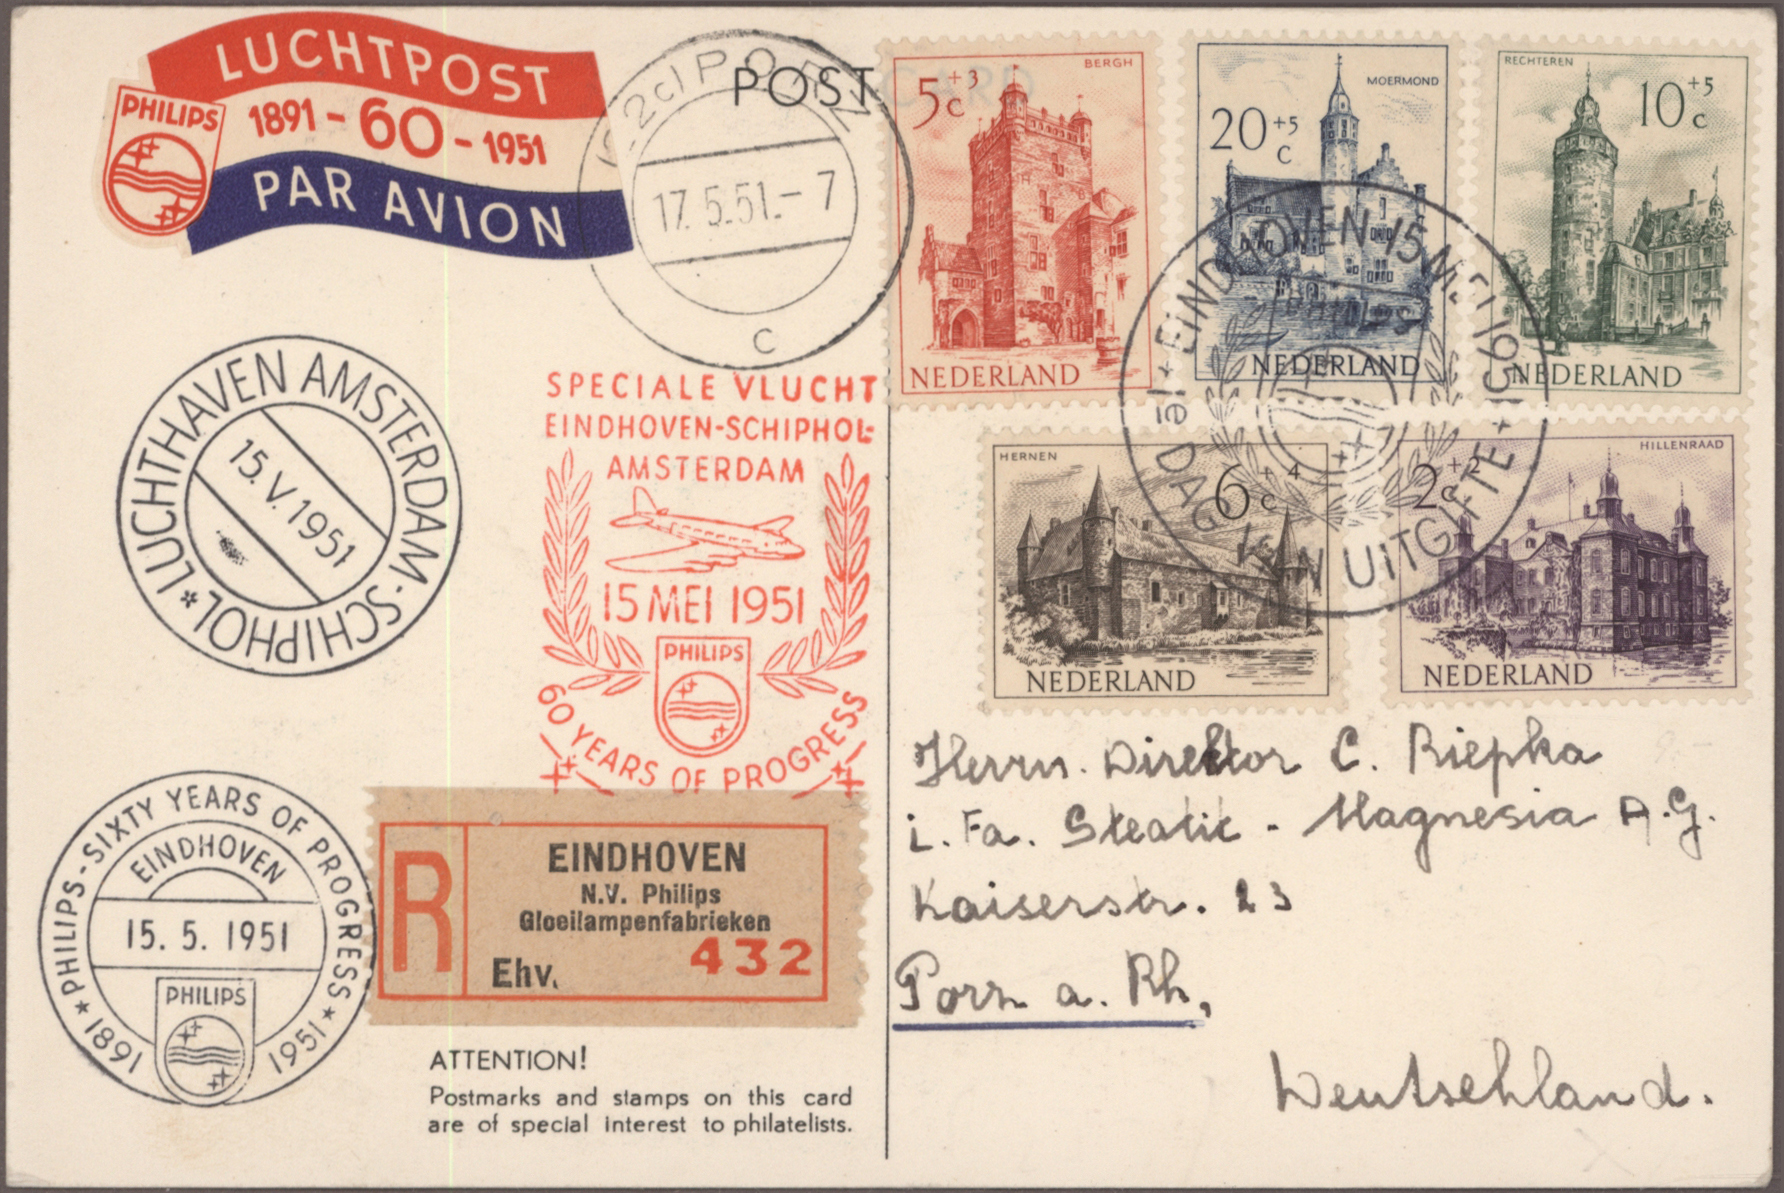 LUCHTPOST
PHILIPS
1891 - 60 - 1951
PAR AVION
POST CARD
(22c) PORZ
17.5.51.- 7
c
BERGH
5+3 c
NEDERLAND
MOERMOND
20+5 c
NEDERLAND
RECHTEREN
10+5 c
NEDERLAND
HERNEN
6+4 c
NEDERLAND
HILLENRAAD
2+2 c
NEDERLAND
EINDHOVEN 15 MEI 1951
PHILIPS
1e DAG VAN UITGIFTE
LUCHTHAVEN AMSTERDAM-SCHIPHOL
15.V.1951
SPECIALE VLUCHT
EINDHOVEN-SCHIPHOL-
AMSTERDAM
15 MEI 1951
PHILIPS
60 YEARS OF PROGRESS
PHILIPS-SIXTY YEARS OF PROGRESS
EINDHOVEN
15. 5. 1951
PHILIPS
1891 1951
R
EINDHOVEN
N.V. Philips
Gloeilampenfabrieken
Ehv. 432
ATTENTION!
Postmarks and stamps on this card
are of special interest to philatelists.
Herrn. Direktor C. Riepka
i. Fa. Steatit - Magnesia A.G.
Kaiserstr. 23
Porz a. Rh,
Deutschland.